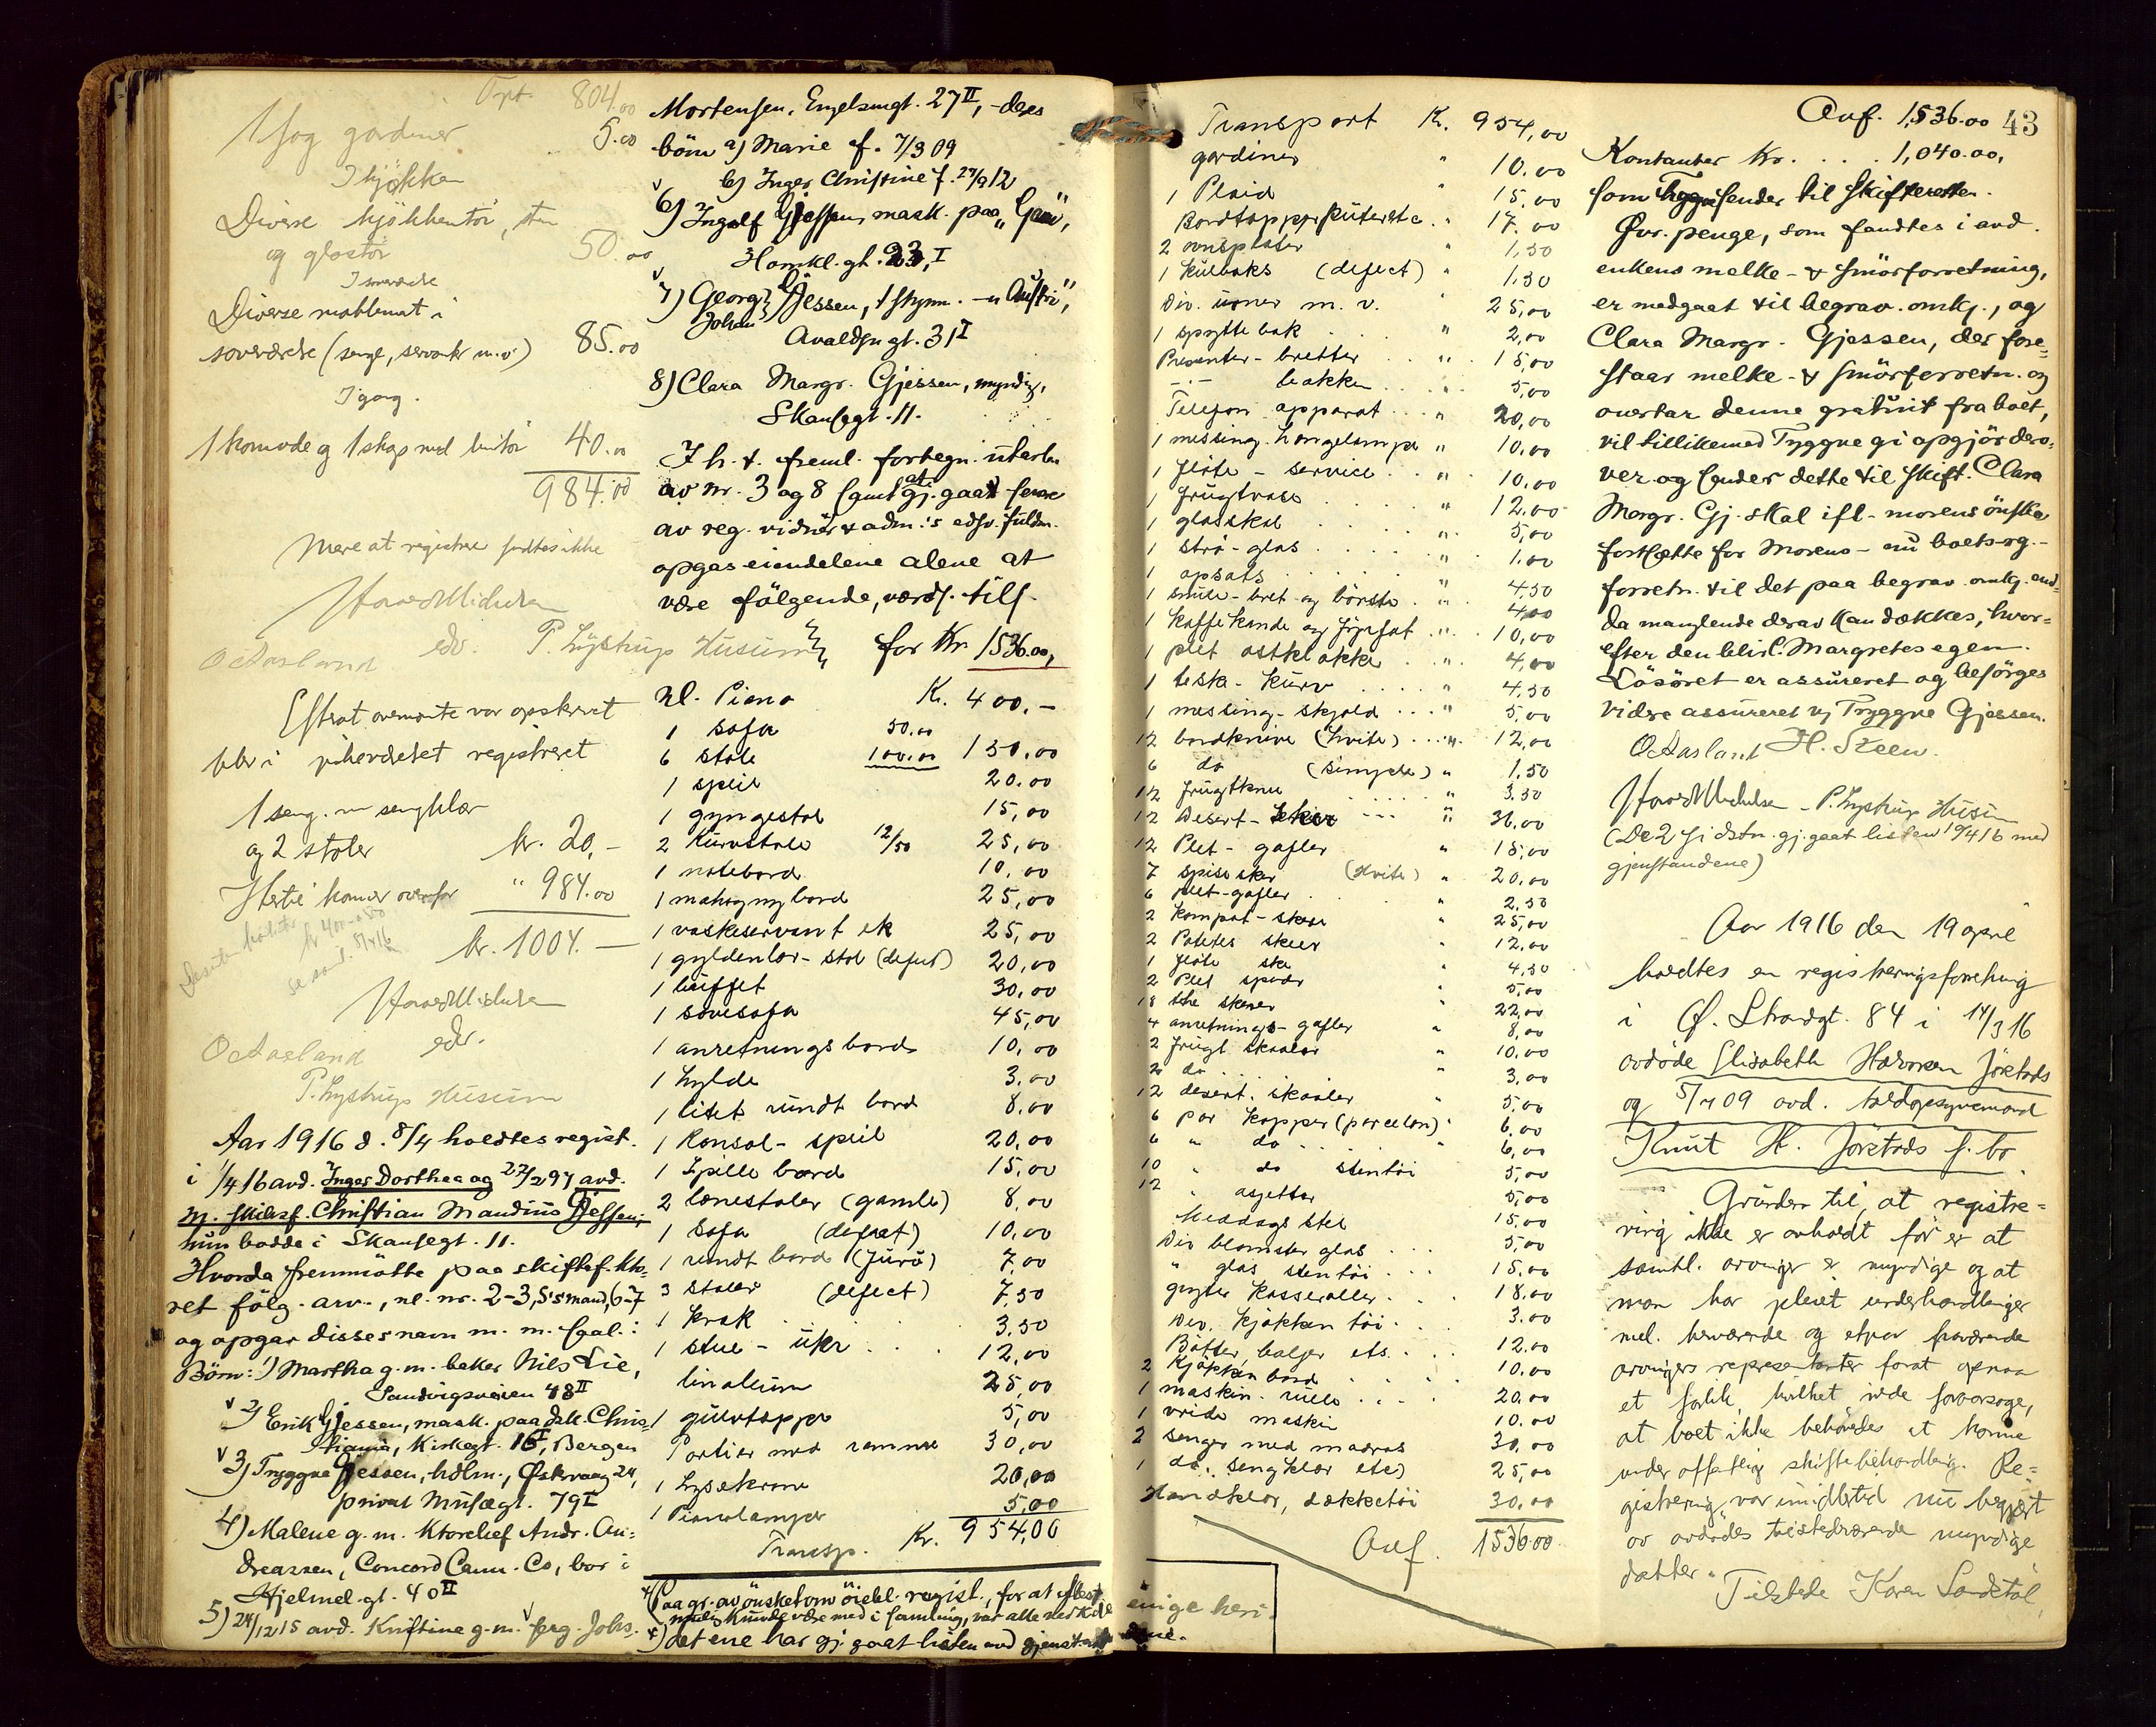 Opt. 804.00
1 fag gardiner 5.00
I kjøkken
Diverse kjøkkentøi, sten
og glastøi 50.00
I soverærelse
Diverse møblement i
soveværelse (senge, servanter m.v.) 85.00
I gang.
1 komode og 1 skap med lintøi 40.00
984.00
Mere at registrere fandtes ikke
edv. P. Lystrup Husum
O Aasland
Efterat ovenstaaende var opskrevet
blev i pikeværelset registreret
1 seng m sengklær
og 2 stoler kr. 20,-
Hertil kommer ovenfor " 984.00
kr. 1004.—
edv.
O Aasland
P. Lystrup Husum
Aar 1916 d. 8/4 holdtes regist.
i 1/4 16 avd. Inger Dorthea og 22/2 97 avd.
m. skibsf. Christian Mandius Gjessen,
hun bodde i Skansegt. 11.
Hvorda fremmötte paa skiftef. kto-
ret fölg. arv., nl. nr. 2-3, 5's mand, 6-7
og opgav disses navn m. m. saal.:
Börn: 1) Martha g. m. baker Nils Lie,
Sandvigsveien 48 II
v 2) Erik Gjessen, mask. paa dsk. Chris-
tiania, Kirkegt. 16 I, Bergen
v 3) Tryggve Gjessen, hdlm., Østervaag 24,
privat Musægt. 79 I
4) Malene g. m. Ktorchef Andr. An-
dreassen, Concord Cann. Co, bor i
Hjelmel. gt. 40 II
5) 24/12 15 avd. Kristine g. m. v Jørg. Johs.
Mortensen, Engelsmgt. 27 II, - deres
börn a) Marie f. 7/3 09
b) Inger Christine f. 27/9 12
v 6) Ingolf Gjessen, mask. paa
Haakl. gt. 23, I
v 7) Georg Johan Gjessen, 1 styrm.
Avaldsn gt. 31 I
8) Clara Margr. Gjessen, myndig,
Skansegt. 11.
I h. t. freml. fortegn. utarb.
av nr. 3 og 8 samt at gj. gaat
av reg. vidner & adm.'s edsv. fuldm.
opgas eiendelene alene at
være fölgende, værds. tils.
for Kr 1536.00,
nl. Piano Kr. 400.-
1 sofa 50.00
6 stole 100.00 150.00
1 speil 20.00
1 gyngestol 15,00
2 Kurvstole 12/50 25,00
1 notebord 10,00
1 mahognybord 25,00
1 vaskeservant ek 25,00
1 gyldenlær-stol (defect) 20,00
1 büffet 30,00
1 sovesofa 45,00
1 anretningsbord 10,00
1 hylde 3.00
1 litet rundt bord 8.00
1 Konsol-speil 20,00
1 Spille bord 15,00
2 lænestoler (gamle) 8,00
1 Sofa (defect) 10,00
1 rundt bord (furu) 7,00
3 stoler (defect) 7,50
1 krak 3,50
1 stue-ükr 12,00
linoleum 25,00
1 gulvteppe 5,00
Portier med ramme 30,00
1 Lysekrone 20,00
1 Pianolampe 5,00
Transp. Kr. 954,00
x) Paa gr. av önsket om öiebl. regist., for at flest
mulig kunde være med i samling, var alle
x) det ene har gj. gaat listen med gjenstandene.
Transport Kr. 954,00
gardiner " 10.00
1 Plaid " 15,00
Bordtepper puter etc. " 17.00
2 ovnsplater " 1,50
1 Külboks (defect) " 1.50
Div. urner m. v. " 25,00
1 spyttebak " 2,00
Presenter-bretter " 15,00
-"- bakken " 5,00
Telefon apparat " 20,00
1 messing hængelampe " 10,00
1 fløte-service " 10.00
1 frugtvase " 12.00
1 glasskal " 5,00
1 strø-glas " 1.00
1 opsats " 4,50
1 smule-bret og børste " 4,00
1 Kaffekande og " 10,00
1 plet osteklokke " 4,00
1 teske-kurv " 4,50
1 messing-skjold " 5,00
12 bordknive (hvite) " 12,00
6 do " 1.50
12 frugtknive " 3.50
12 Desert-skeer " 36.00
12 Plet-gafler " 15,00
7 spiseskeer (hvite) " 20.00
6 plet-gafler " 2,50
2 Kompot-skeer " 25,00
2 Potetes skeer " 12.00
1 fløte ske " 4,50
2 Plet spader " 5,00
18 the skeer " 22,00
4 anretnings-gafler " 8,00
2 frugt skaaler " 10.00
2 do " 3.00
12 desert. skaaler " 5,00
6 par kopper (porcelæn) " 6,00
6 " do " 6,00
10 " do stentøi 5,00
12 " asjetter 5,00
Middags stel 15,00
Div blomster glas 5,00
" glas stentøi 15.00
gryter kasseroller 18.00
Div. Kjøkken tøi 3.00
Bøtter, baljer etc. 12.00
2 Kjøkken bord 10.00
1 maskin rulle 20.00
1 vride maskin 10.00
2 senger med madras 30.00
1 do. sengklær etc) 25,00
Haandklær, dækketøi 30.00
Ovf. 1536.00
enige heri.
Ovf. 1,536.00 43
Kontanter Kr. . . . 1,040.00,
som Tryggve sender til Skifteretten.
Øvr. penge, som fandtes i avd.
enkens melke- & smörforretning,
er medgaat til begrav. omkj., og
Clara Margr. Gjessen, der fore-
staar melke- & smörforretn. og
overtar denne gratuit fra boet,
vil tillikemed Tryggve gi opgjör dero-
ver og sender dette til skift. Clara
Margr. Gj. skal ifl. morens önske
fortsætte for Morens - nu boets rg. -
forretn. til det paa begrav. omkj. end-
da manglende derav kan dækkes, hvor-
efter den blir Cl. Margretes egen.
Lösöret er assureret og besörges
videre assureret v/ Tryggve Gjessen.
O Aasland H. Steen.
P. Lystrup Husum
(De 2 gj. gaat listen 10/4 16 med
gjenstandene)
Aar 1916 den 19 april
holdtes en registreringsforretning
i Ø. Strandgt. 84 i 14/3 16
avdøde Elisabeth Halvorsen Jöretads
og 5/7 09 avd.
Knut H. Jöretads f. bo.
Grunden til, at registre-
ring ikke er avholdt før er at
samtl. arvinger er myndige og at
man har pleiet underhandlinger
mel. herværende og etpar fraværende
arvingers representanter forat opnaa
et forlik, hvilket vilde foraarsage,
at boet ikke behøvdes at komme
under offentlig skiftebehandling. Re-
gistrering var imidlertid nu begjært
av avdødes tilstedeværende myndige
datter.
Tilstede Karen Sandstøl